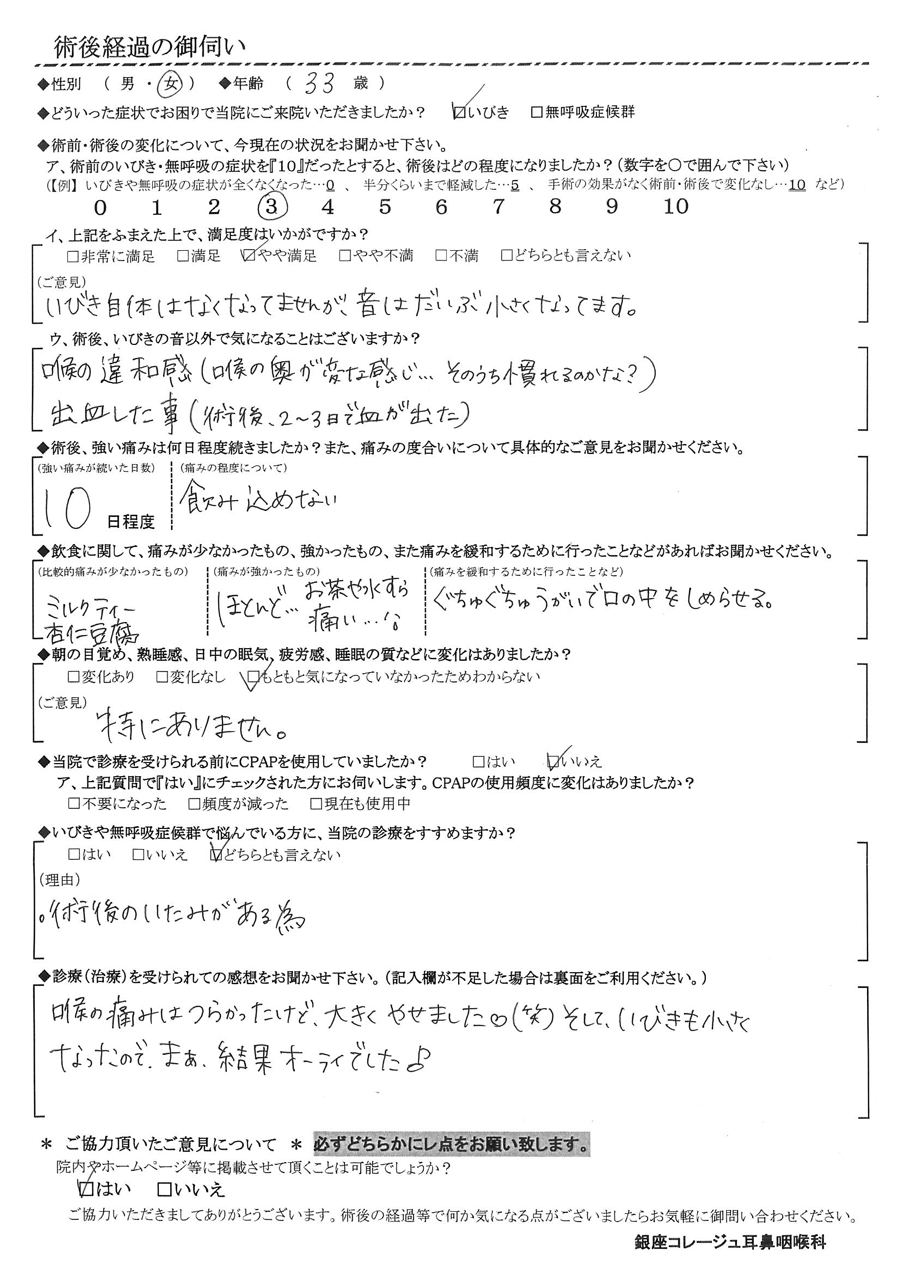 術後経過の御伺い
◆性別　（ 男 ・ 女 ）　◆年齢　（ 33 歳 ）
◆どういった症状でお困りで当院にご来院いただきましたか？　☑いびき　□無呼吸症候群
◆術前・術後の変化について、今現在の状況をお聞かせ下さい。
ア、術前のいびき・無呼吸の症状を『10』だったとすると、術後はどの程度になりましたか？（数字を〇で囲んで下さい）
（【例】 いびきや無呼吸の症状が全くなくなった…0 、 半分くらいまで軽減した…5 、 手術の効果がなく術前・術後で変化なし…10 など）
0 1 2 3 4 5 6 7 8 9 10
イ、上記をふまえた上で、満足度はいかがですか？
□非常に満足　□満足　☑やや満足　□やや不満　□不満　□どちらとも言えない
（ご意見）
いびき自体はなくなってませんが、音はだいぶ小さくなってます。
ウ、術後、いびきの音以外で気になることはございますか？
喉の違和感（喉の奥が変な感じ… そのうち慣れるのかな？）
出血した事（術後、2～3日で血が出た）
◆術後、強い痛みは何日程度続きましたか？また、痛みの度合いについて具体的なご意見をお聞かせください。
（強い痛みが続いた日数）　（痛みの程度について）
10 日程度　飲み込めない
◆飲食に関して、痛みが少なかったもの、強かったもの、また痛みを緩和するために行ったことなどがあればお聞かせください。
（比較的痛みが少なかったもの）　（痛みが強かったもの）　（痛みを緩和するために行ったことなど）
ミルクティー
杏仁豆腐
ほとんど… お茶や水すら
痛い…。
ぐちゅぐちゅうがいで口の中をしめらせる。
◆朝の目覚め、熟睡感、日中の眠気、疲労感、睡眠の質などに変化はありましたか？
□変化あり　□変化なし　☑もともと気になっていなかったためわからない
（ご意見）
特にありません。
◆当院で診療を受けられる前にCPAPを使用していましたか？　□はい　☑いいえ
ア、上記質問で『はい』にチェックされた方にお伺いします。CPAPの使用頻度に変化はありましたか？
□不要になった　□頻度が減った　□現在も使用中
◆いびきや無呼吸症候群で悩んでいる方に、当院の診療をすすめますか？
□はい　□いいえ　☑どちらとも言えない
（理由）
。術後のいたみがある為
◆診療（治療）を受けられての感想をお聞かせ下さい。（記入欄が不足した場合は裏面をご利用ください。）
喉の痛みはつらかったけど、大きくやせました♡（笑）そして、いびきも小さく
なったので、まぁ、結果オーライでした♪
＊ ご協力頂いたご意見について ＊ 必ずどちらかにレ点をお願い致します。
院内やホームページ等に掲載させて頂くことは可能でしょうか？
☑はい　□いいえ
ご協力いただきましてありがとうございます。術後の経過等で何か気になる点がございましたらお気軽に御問い合わせください。
銀座コレージュ耳鼻咽喉科